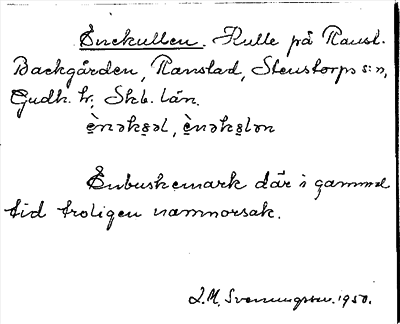 Enekullen. Kulle på Ranst.
Backgården, Ranstad, Stenstorps s:n,
Gudh. hr; Skb. län.
Enbuskemark där i gammal
tid troligen namnorsak.
J.M. Svenungsson. 1950.